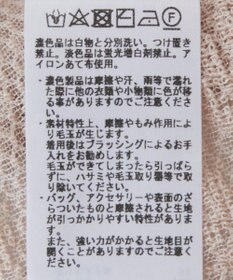 濃色品は白物と分別洗い。つけ置き
禁止。淡色品は蛍光増白剤禁止。ア
イロンあて布使用。
・濃色製品は摩擦や汗、雨等で濡れ
た際に他の衣類や小物類に色が移
る事がありますのでご注意くださ
い。
・素材特性上、摩擦やもみ作用によ
り毛玉が生じます。
着用後はブラッシングによるお手
入れをお勧めします。
毛玉ができてしまったら引っぱら
ずに、ハサミや毛玉取り器等で取
り除いてください。
・バッグ、アクセサリーや表面のざ
らついたものと摩擦されると生地
が引っかかりやすい特性がありま
す。
また、強い力がかかると生地目が
開くことがありますのでご注意く
ださい。